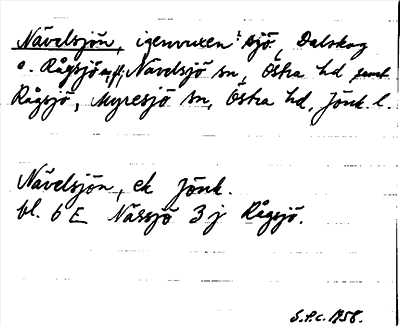 Nävelsjön, igenvuxen sjö, Dalskog
o. Rågsjön, Nävelsjö sn, Östra hd samt
Rågsjö, Myresjö sn, Östra hd, Jönk. l.
Nävelsjön, ek Jönk.
bl. 6 E Nässjö 3 j Rågsjö.
S.P.C. 1958.